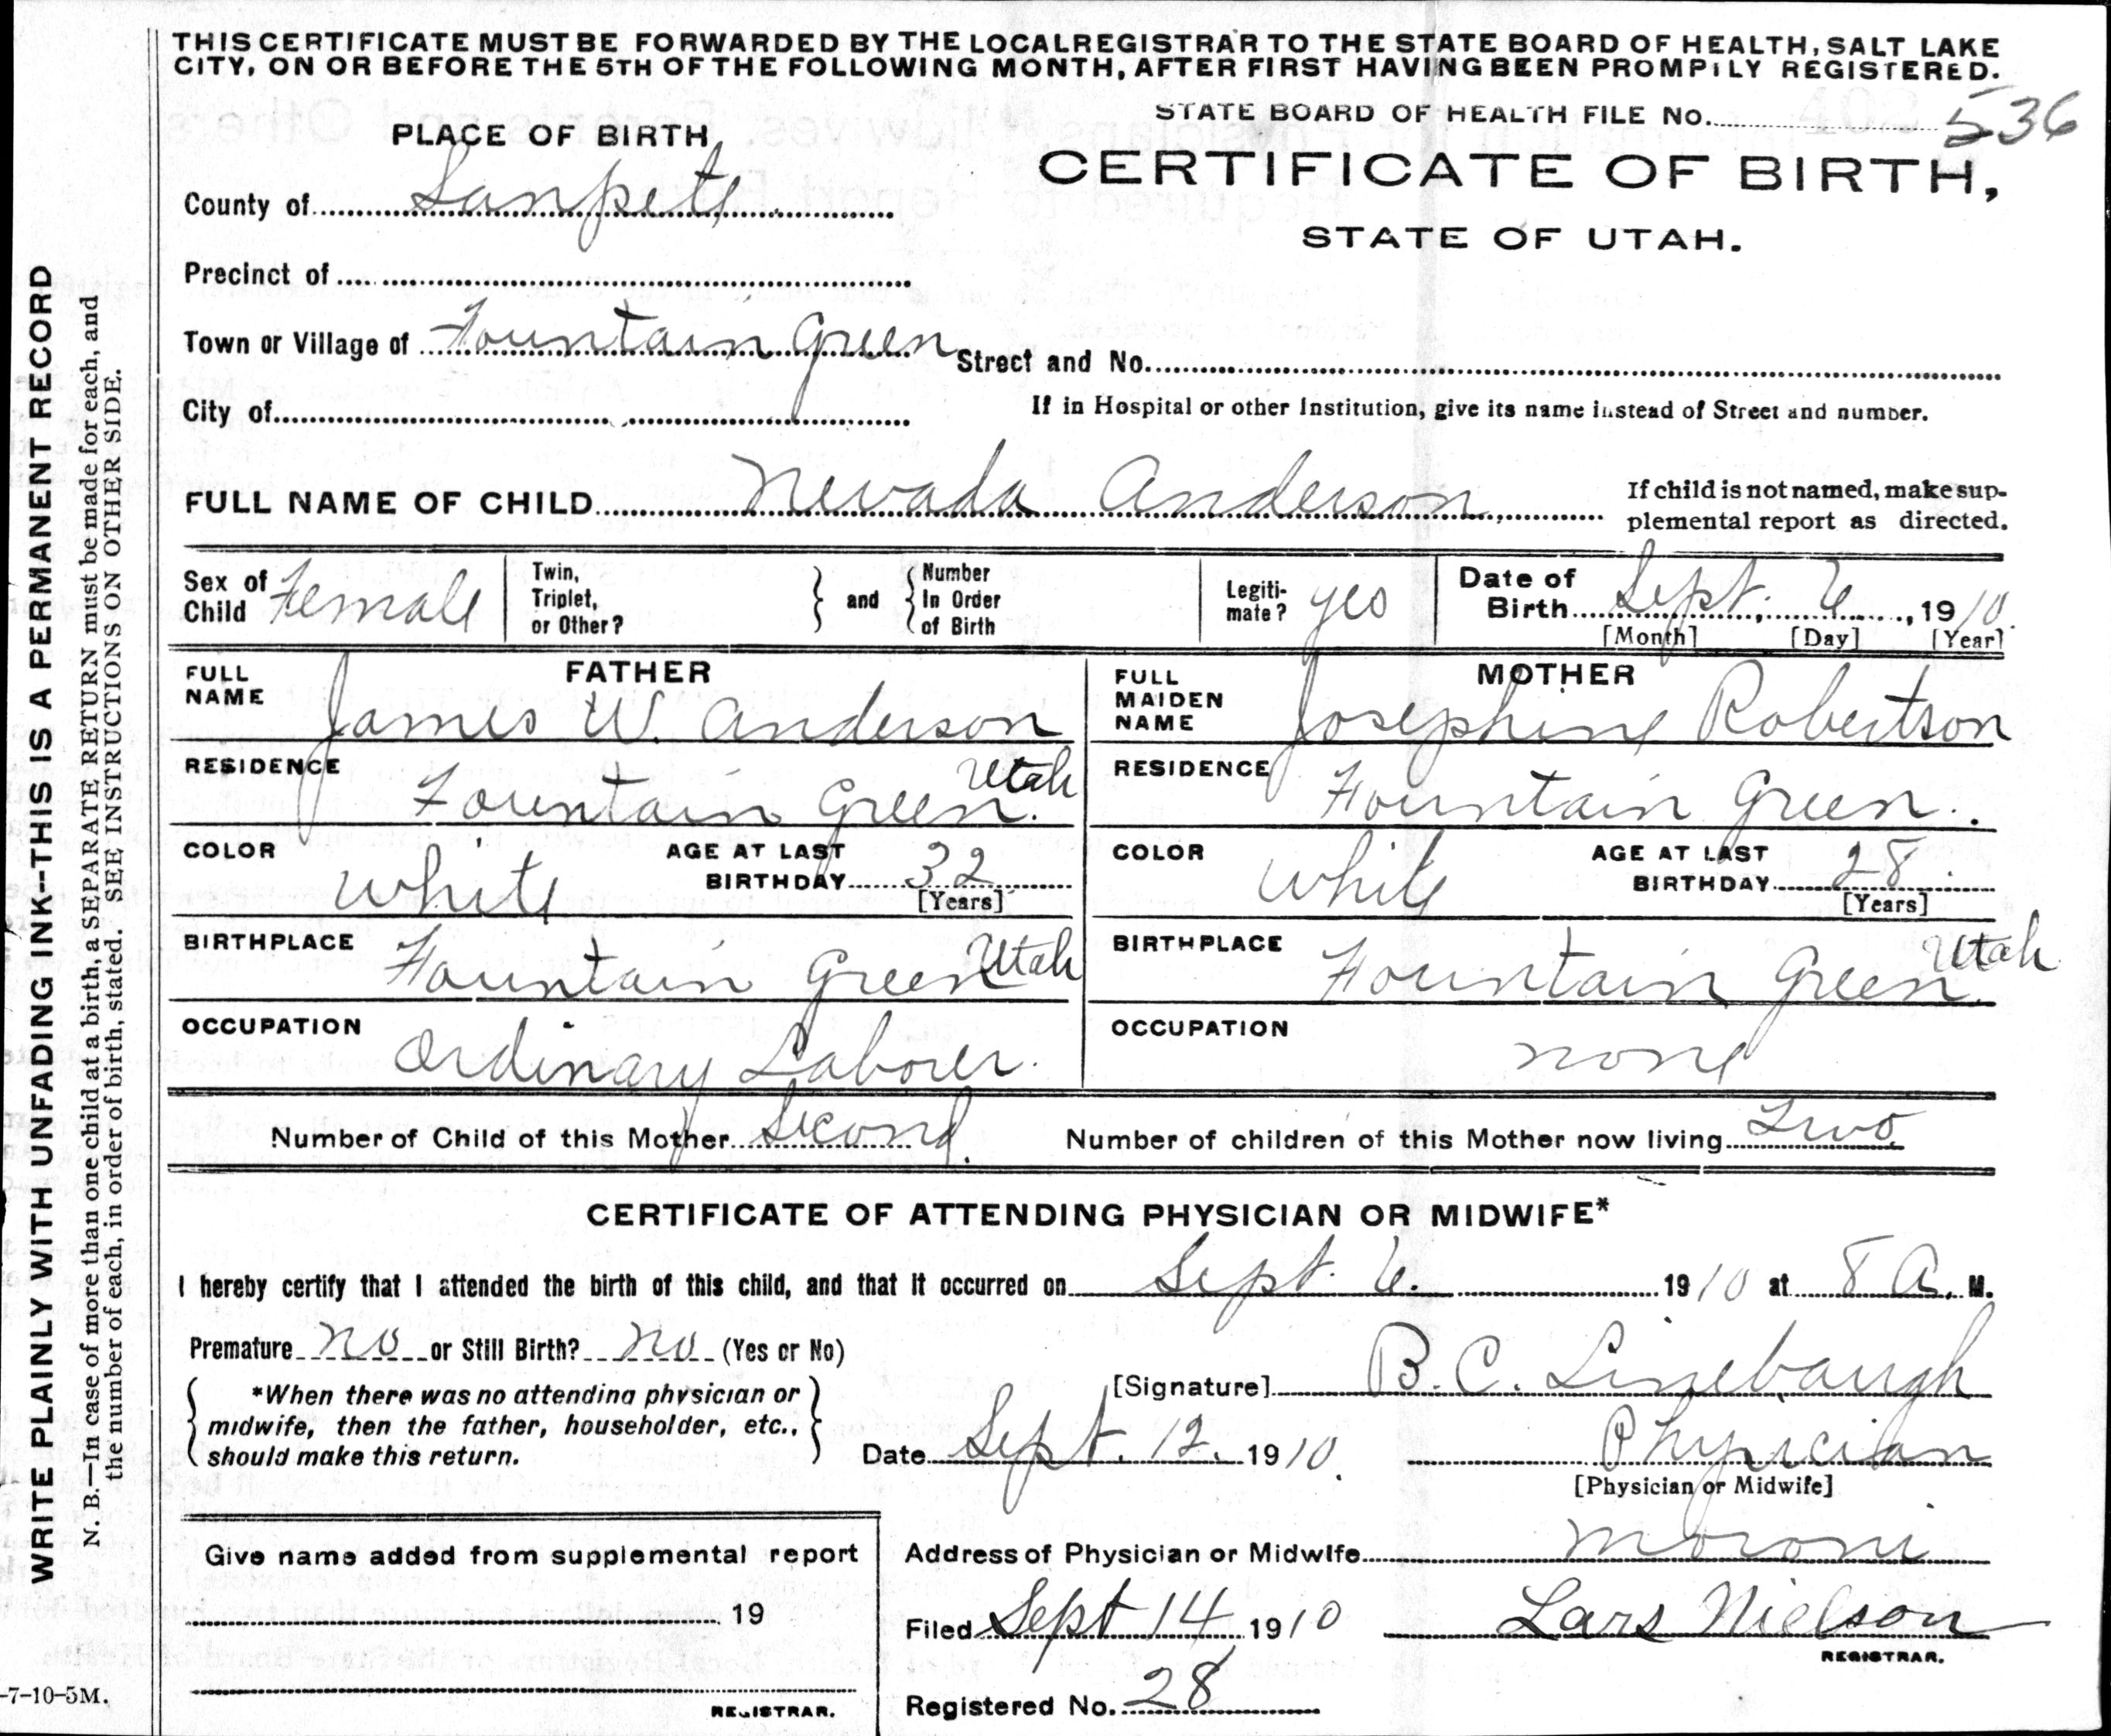 THIS CERTIFICATE MUST BE FORWARDED BY THE LOCAL REGISTRAR TO THE STATE BOARD OF HEALTH, SALT LAKE
CITY, ON OR BEFORE THE 5TH OF THE FOLLOWING MONTH, AFTER FIRST HAVING BEEN PROMPILY REGISTERED.
STATE BOARD OF HEALTH FILE No. 536
PLACE OF BIRTH,
CERTIFICATE OF BIRTH,
County of Sanpete
STATE OF UTAH.
Precinct of
Town or Village of Fountain Green Street and No.
City of If in Hospital or other Institution, give its name instead of Street and number.
FULL NAME OF CHILD Nevada Anderson If child is not named, make sup-
plemental report as directed.
Sex of Child Female Twin, Triplet, or Other? and Number In Order of Birth Legiti-mate? yes Date of Birth Sept. 6, 1910.
[Month] [Day] [Year]
FATHER MOTHER
FULL NAME James W. Anderson FULL MAIDEN NAME Josephine Robertson
RESIDENCE Fountain Green. Utah RESIDENCE Fountain Green.
COLOR White AGE AT LAST BIRTHDAY 32 [Years] COLOR White AGE AT LAST BIRTHDAY 28 [Years]
BIRTHPLACE Fountain Green Utah BIRTHPLACE Fountain Green Utah
OCCUPATION Ordinary Laborer. OCCUPATION none
Number of Child of this Mother Second. Number of children of this Mother now living Two
CERTIFICATE OF ATTENDING PHYSICIAN OR MIDWIFE*
I hereby certify that I attended the birth of this child, and that it occurred on Sept. 6. 1910 at 8 A. M.
Premature no or Still Birth? no (Yes or No)
[Signature] B. C. Linebaugh
*When there was no attending physician or
midwife, then the father, householder, etc.,
should make this return.
Date Sept. 12. 1910. Physician
[Physician or Midwife]
Give name added from supplemental report
19
REGISTRAR.
Address of Physician or Midwife Moroni
Filed Sept 14 1910 Lars Nielson
REGISTRAR.
Registered No. 28
WRITE PLAINLY WITH UNFADING INK-THIS IS A PERMANENT RECORD
N. B.—In case of more than one child at a birth, a SEPARATE RETURN must be made for each, and
the number of each, in order of birth, stated. SEE INSTRUCTIONS ON OTHER SIDE.
-7-10-5M.